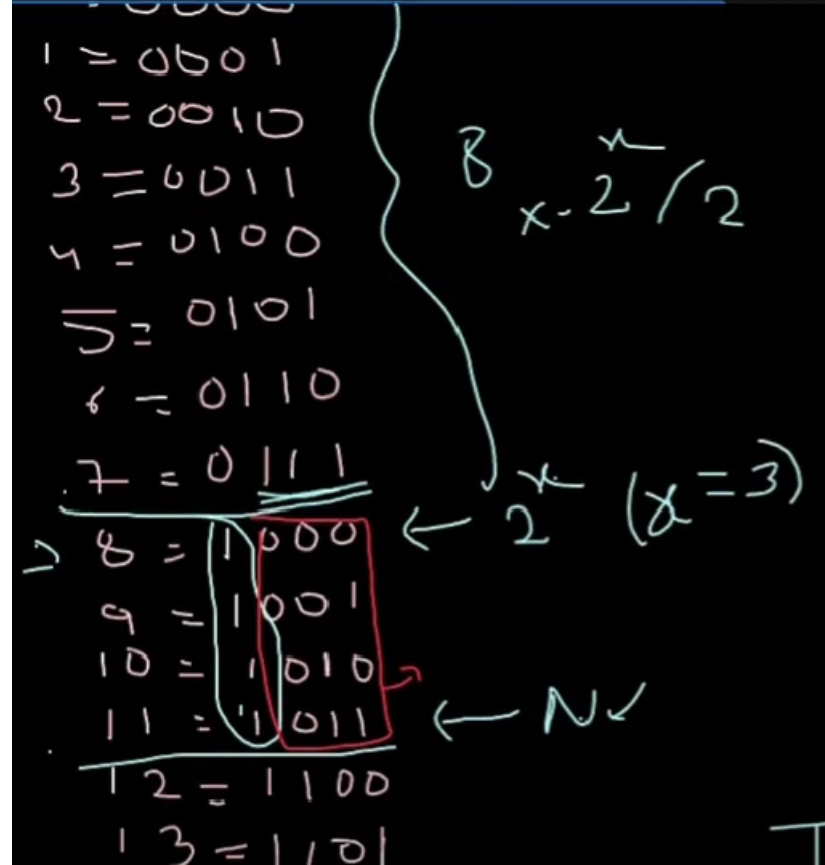 0000
1 = 0001
2 = 0010
3 = 0011
4 = 0100
5 = 0101
6 = 0110
7 = 0111
8 = 1000
9 = 1001
10 = 1010
11 = 1011
12 = 1100
13 = 1101
8
x · 2^x / 2
← 2^x (x = 3)
← N